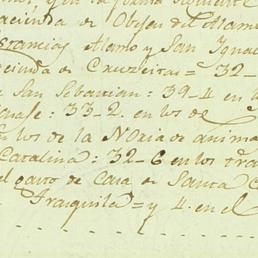 Hacienda de Obgen del Alamo
Estancias Alamo y San Ignac
Hacienda de Cruzeitas = 32-
San Sebastian: 39-4 en l
33-2. en los de
los de la Noria de anima
Catalina: 32-6 en los tra
el gasto de Casa de Santa C
Franquila = y 4. en el